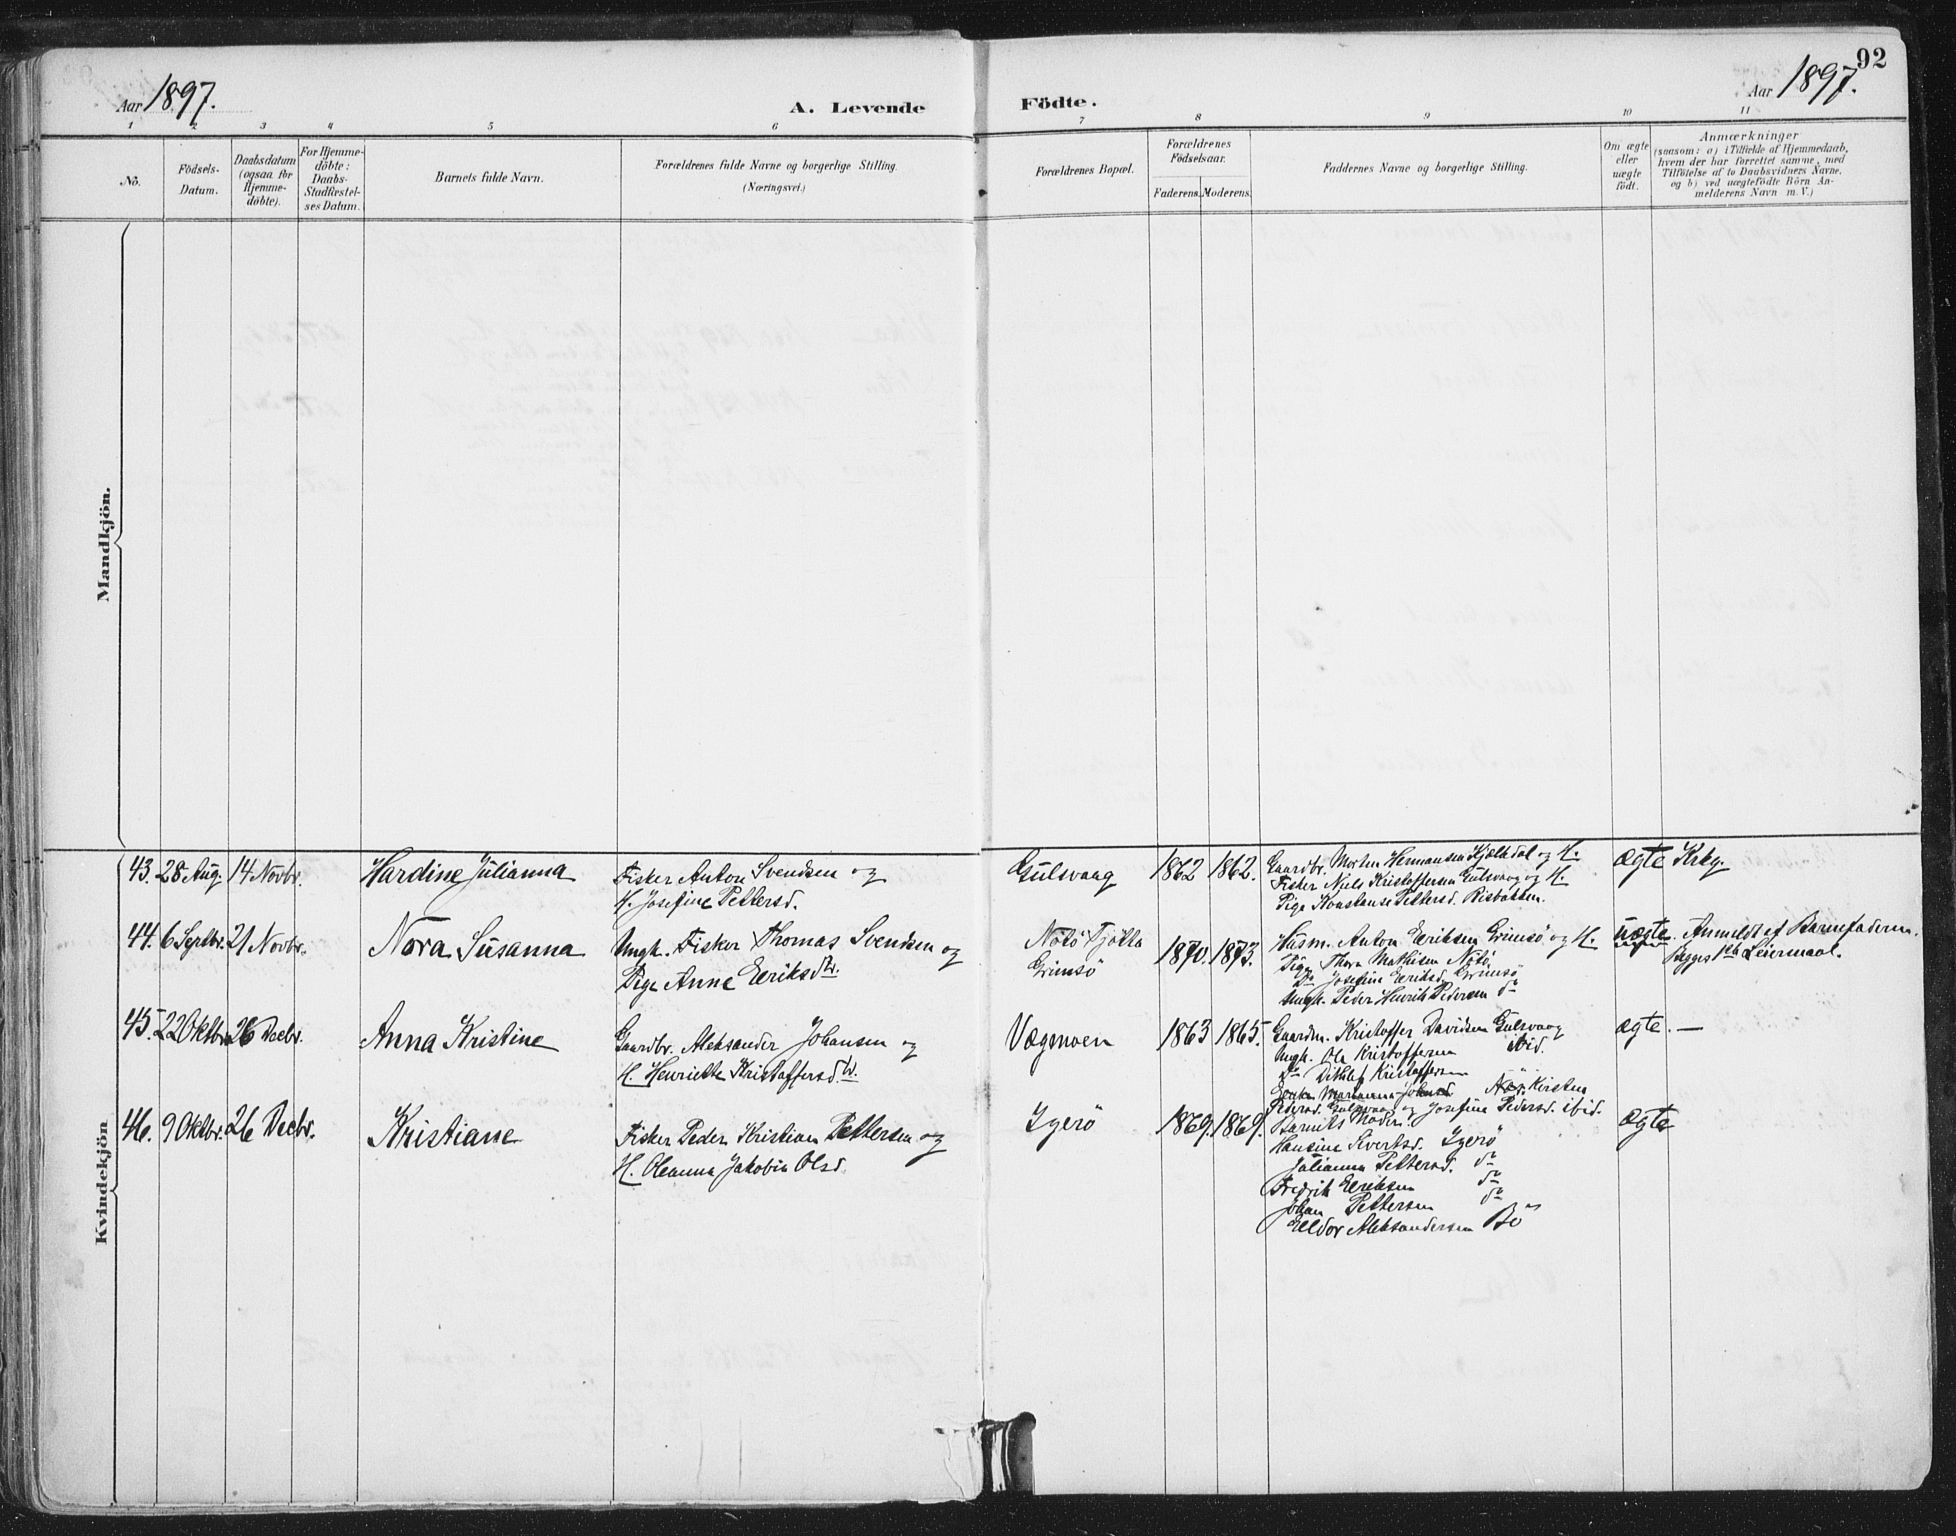 92
Aar 1897.
A. Levende
Födte.
Aar 1897.
1 2 3 4 5 6 7 8 9 10 11
No.
Födsels-
Datum.
Daabsdatum
(ogsaa for
Hjemme-
döbte).
For Hjemme-
döbte:
Daabs-
Stadfæstel-
ses Datum.
Barnets fulde Navn.
Forældrenes fulde Navne og borgerlige Stilling.
(Næringsvei.)
Forældrenes Bopæl.
Forældrenes
Födselsaar.
Faderens. Moderens.
Faddernes Navne og borgerlige Stilling.
Om ægte
eller
uægte
födt.
Anmærkninger
(saasom: a) i Tilfælde af Hjemmedaab,
hvem der har forrettet samme, med
Tilföielse af to Daabsvidners Navne,
og b) ved uægtefödte Börn An-
melderens Navn m. V.)
Mandkjön.
Kvindekjön
43. 28 Aug. 14 Novbr. Hardine Julianna
Fisker Anton Svendsen og
H. Josefine Pettersd.
Gulsvaag 1862 1862.
Gaardbr. Morten Hermansen Kjölsdal og H.
Fisker Niels Kristoffersen Gulsvaag og H.
Pige Konstanse Pettersd. Risbakken.
ægte Krkg.
44. 6 Septbr. 21 Novbr. Nora Susanna
Ungk. Fisker Thomas Svendsen og
Pige Anne Eeriksdtr.
Nötö Tjötta
Grimsö
1870. 1873.
Husm. Anton Eeriksen Grimsö og H.
Pige Thora Mathisen Nötö.
Do Josefine Eeriksd. Grimsö
Ungk. Peder Henrik Pedersen do
uægte.
uægte
Anmeldt af Barnefaderen.
Begges 1ste Leiermaal.
45. 22 Oktbr. 26 Decbr. Anna Kristine
Gaardbr. Aleksander Johansen og
H. Henriette Kristoffersdtr.
Vægmoen 1863 1865.
Gaardm. Kristoffer Davidsen Gulsvaag
Ungk. Ole Kristoffersen ibid.
Do Ditlef Kristoffersen
Enke Marianna Johnsd. Kirsten
Pedersd. Gulsvaag og Josefine Pedersd. ibid.
ægte. —
46. 9 Oktbr. 26 Decbr. Kristiane
Fisker Peder Kristian Pettersen og
H. Oleanna Jakobin Olsd.
Igerö 1869. 1869.
Barnets Moder.
Hansine Sivertsd. Igerö
Julianna Pettersd. do
Fredrik Eeriksen do
Johan Pettersen do
Eldor Aleksandersen Bö
ægte